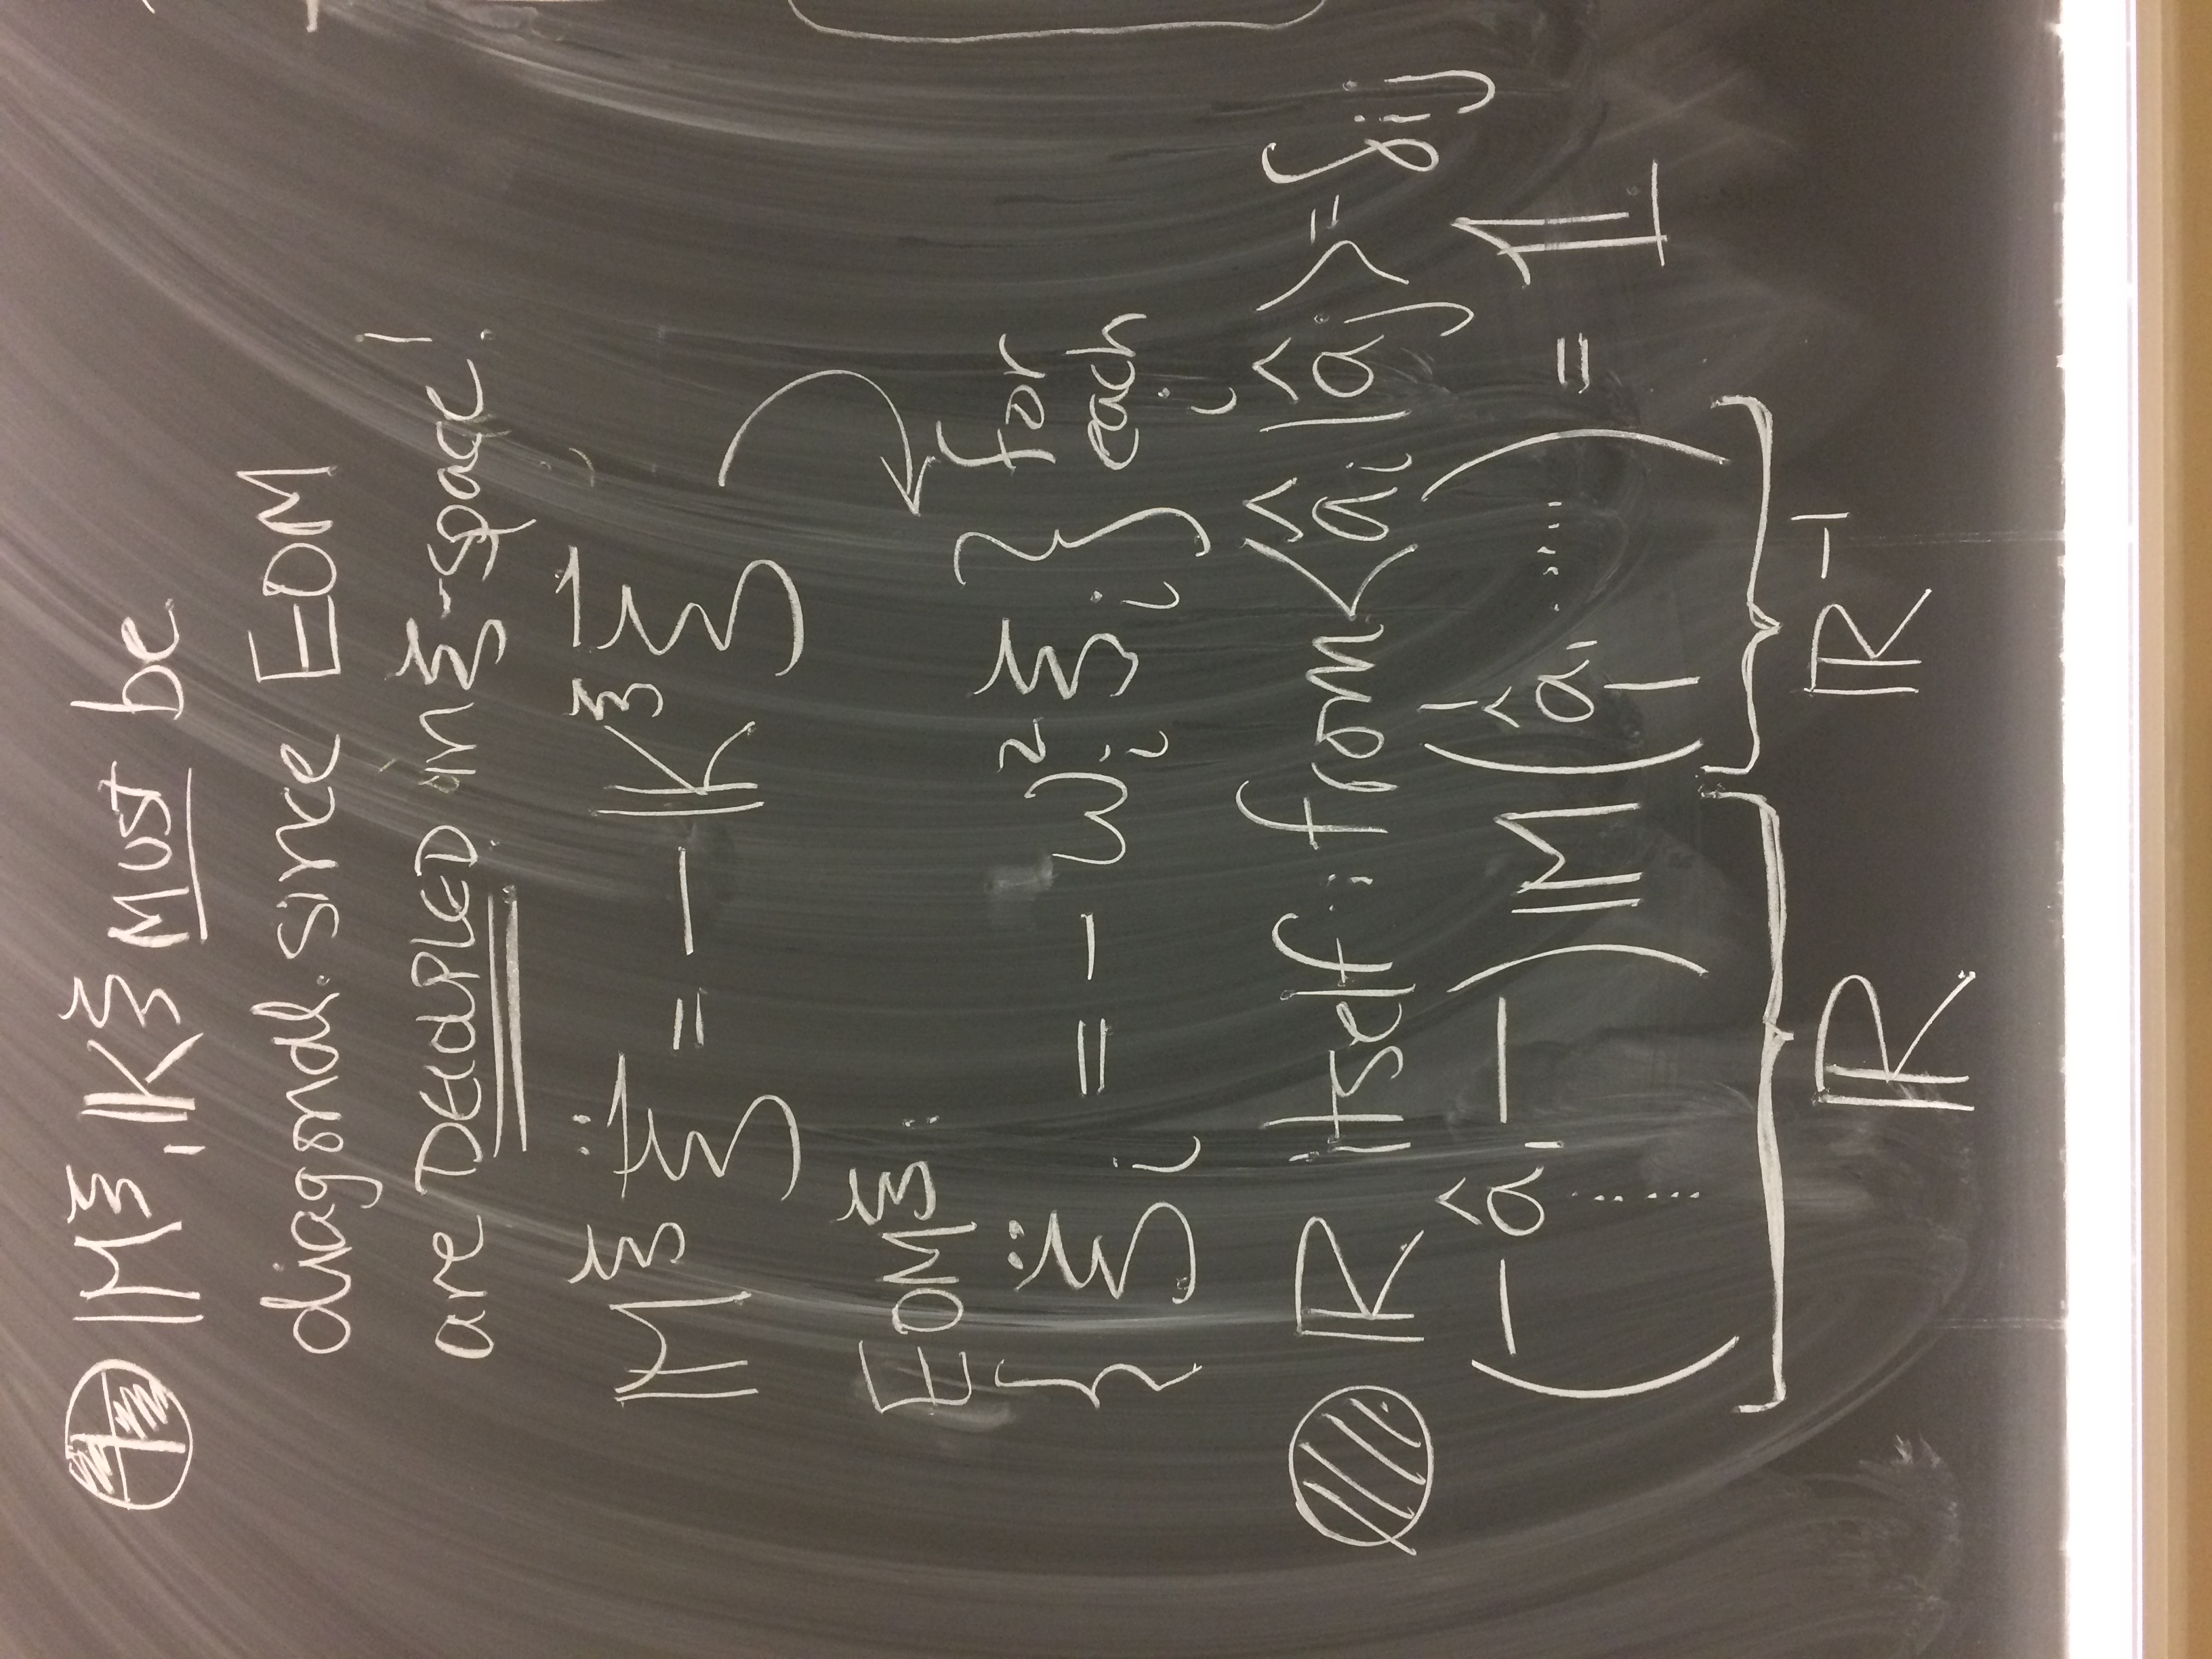 𝕄^ξ, 𝕂^ξ Must be
diagonal. since EOM
are DECOUPLED in ξ-space!
𝕄^ξ ξ⃗̈ = - 𝕂^ξ ξ⃗
EOM^ξ :
{ ξ̈_i = - ω_i² ξ_i } for each i
ℝ itself: from <â_i|â_j> = δ_ij
(— â_1 — ......) 𝕄 (â_1 | ......) = 𝟙
ℝ ℝ^-1